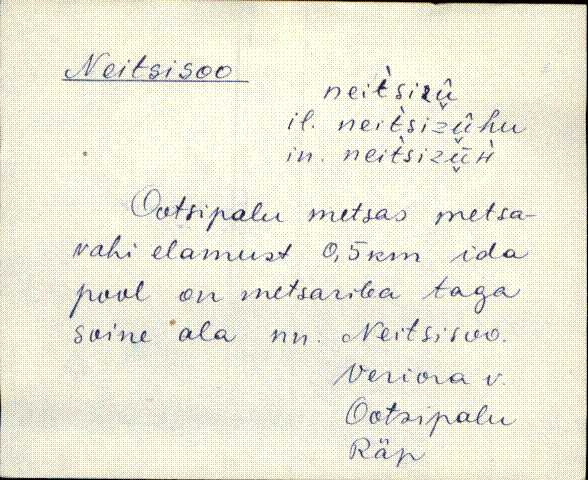 Neitsisoo
neit̀sizû̬
il. neit̀siz̬û̬hu
in. neit̀siz̬ū̬h̀
Ootsipalu metsas metsa-
vahi elamust 0,5 km ida
pool on metsariba taga
soine ala nn. Neitsisoo.
Veriora v.
Ootsipalu
Räp